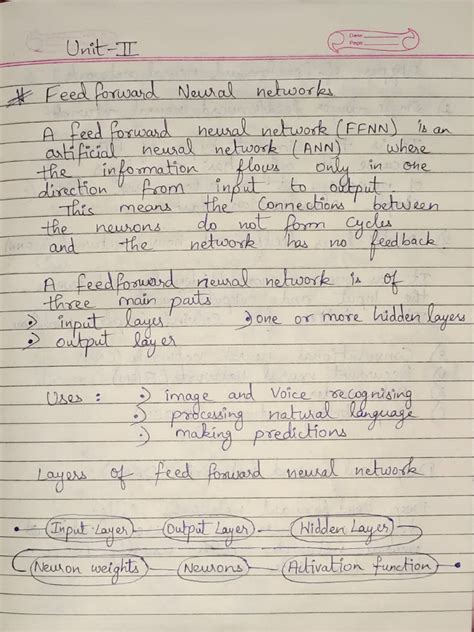 Unit-II
Date
Page
# Feed forward Neural networks
A feed forward neural network (FFNN) is an
artificial neural network (ANN) where
the information flows only in one
direction from input to output.
This means the Connections between
the neurons do not form Cycles
and the network has no feedback.
A feedforward neural network is of
three main parts
:) input layer :) one or more hidden layers
:) output layer
Uses : :) image and Voice recognising
:) processing natural language
:) making predictions
Layers of feed forward neural network
Input Layer Output Layer Hidden Layer
Neuron weights Neurons Activation function